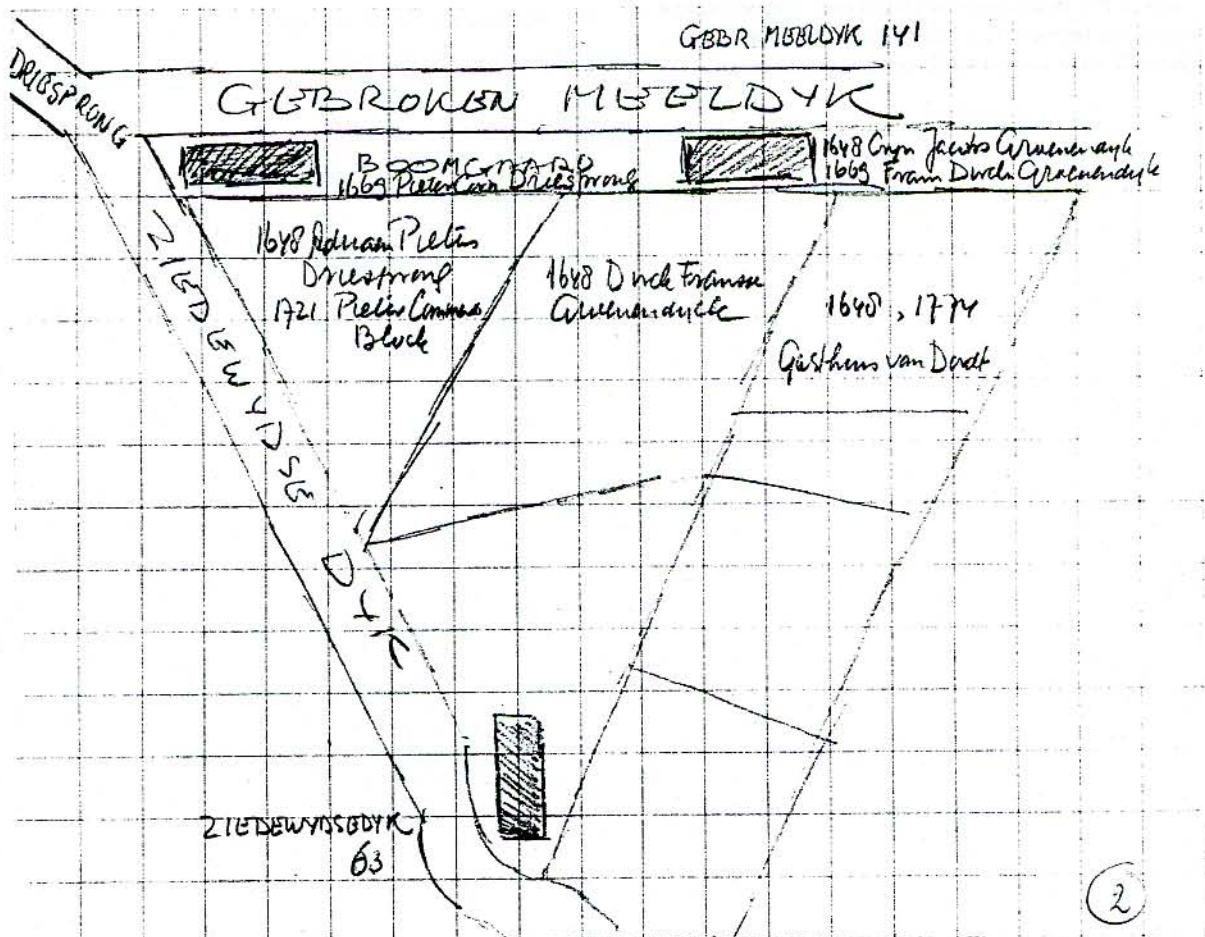 GEBR MEELDYK 141
DRIESPRONG
GEBROKEN MEELDYK
BOOMGAARD
1669 Pieter Corn Driesprong
1648 Jacobs Groenendyk
1669 Frans Dirck Groenendyk
1648 Adriaan Pieters
Driesprong
1721 Pieter
Block
1648 Dirck Fransse
Groenendyck
1648, 1774
Gasthuis van Dordt
ZIEDEWYDSE
DYK
ZIEDEWYDSEDYK
63
2